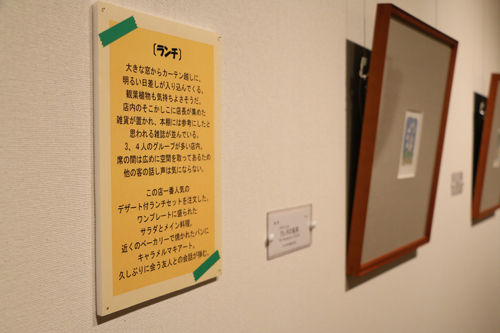 〔ランチ〕
大きな窓からカーテン越しに、
明るい日差しが入り込んでくる。
観葉植物も気持ちよさそうだ。
店内のそこかしこに店長が集めた
雑貨が置かれ、本棚には参考にしたと
思われる雑誌が並んでいる。
3、4人のグループが多い店内。
席の間は広めに空間を取ってあるため
他の客の話し声は気にならない。
この店一番人気の
デザート付ランチセットを注文した。
ワンプレートに盛られた
サラダとメイン料理。
近くのベーカリーで焼かれたパンに
キャラメルマキアート。
久しぶりに会う友人との会話が弾む。